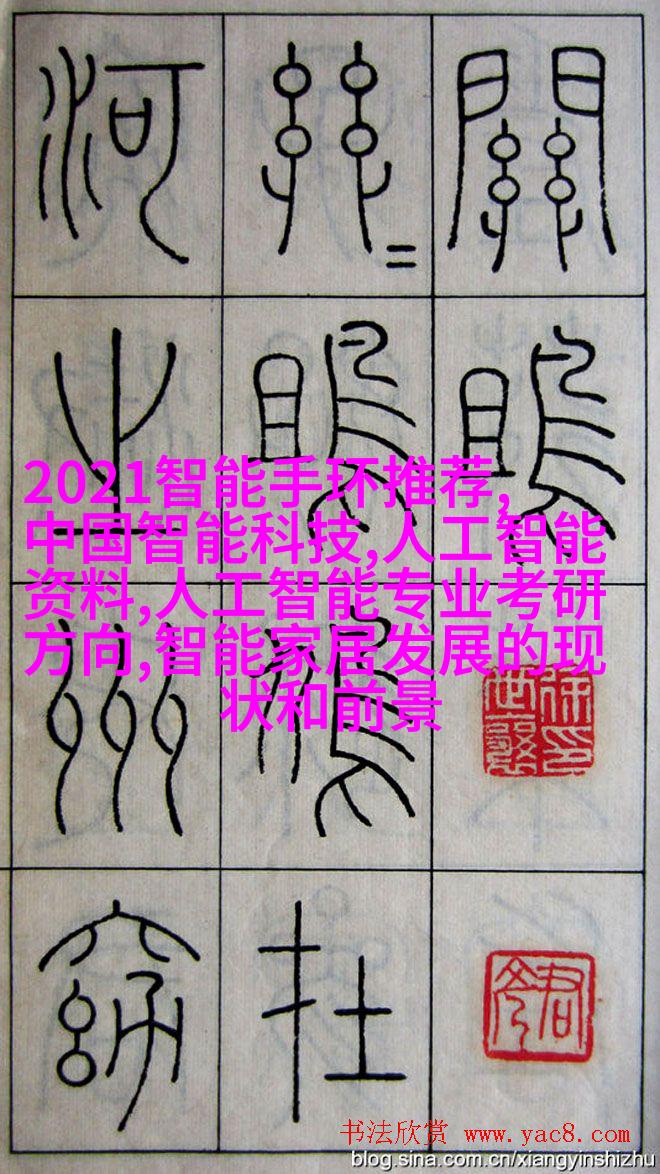 關鴡
鴡鳩在
河之州窈
2021智能手环推荐,
中国智能科技,人工智能
资料,人工智能专业考研
方向,智能家居发展的现
状和前景
书法欣赏 www.yac8.com
blog.sina.com.cn/xiangyinshizhu